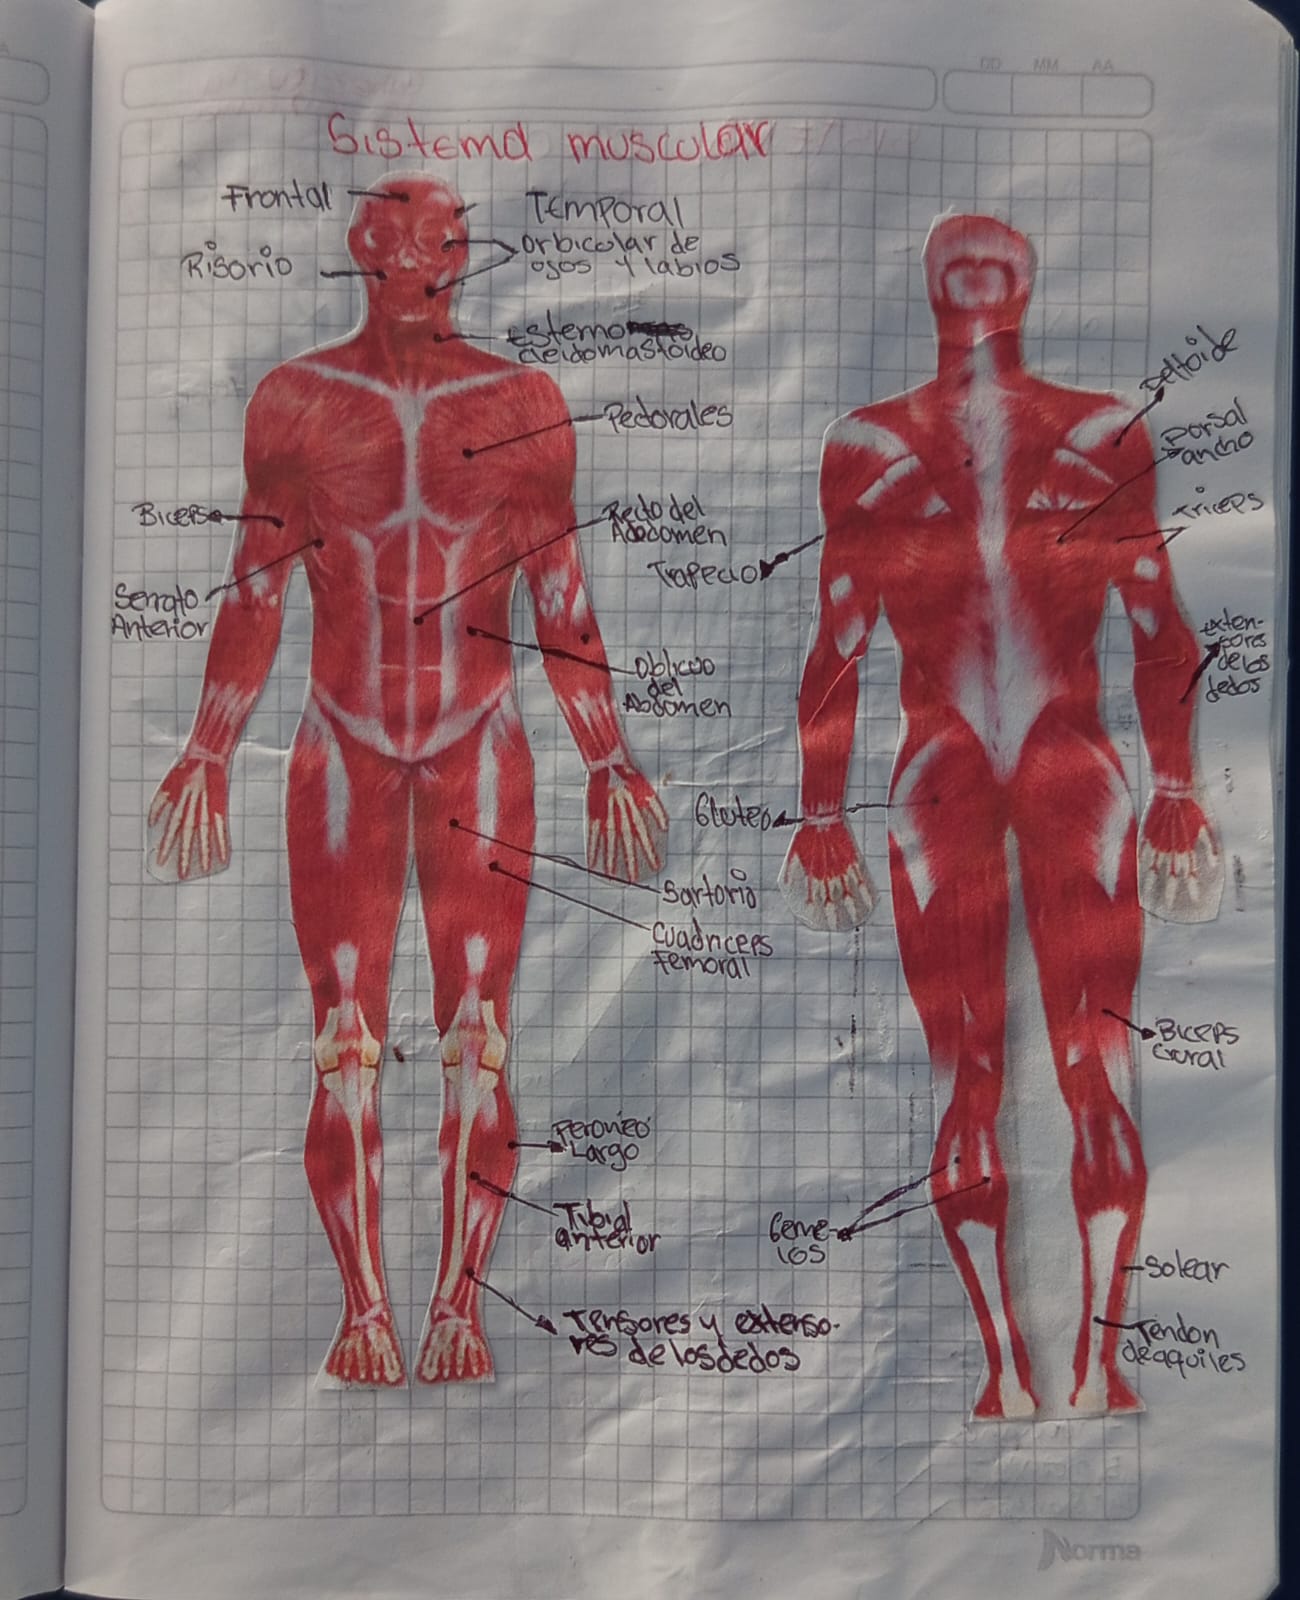 DD MM AA
Sistema muscular
Frontal
Temporal
orbicular de
ojos y labios
Risorio
Esterno
cleidomastoideo
Pectorales
Biceps
Recto del
Abdomen
Serrato
Anterior
Oblicuo
del
Abdomen
Sartorio
Cuadriceps
Femoral
Peroneo
Largo
Tibial
anterior
Tensores y extenso-
res de los dedos
Deltoide
Dorsal
ancho
Triceps
Trapecio
exten-
sores
de los
dedos
Gluteo
Biceps
Crural
Geme-
los
Solear
Tendon
de aquiles
Norma